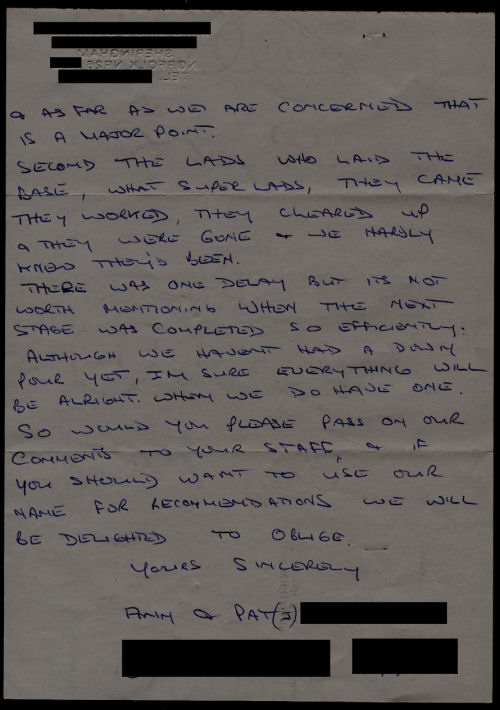 SHERINGHAM
NORFOLK NR26
TEL.
& AS FAR AS WE ARE CONCERNED THAT
IS A MAJOR POINT.
SECOND THE LADS WHO LAID THE
BASE, WHAT SUPER LADS, THEY CAME
THEY WORKED, THEY CLEARED UP
& THEY WERE GONE & WE HARDLY
KNEW THEY'D BEEN.
THERE WAS ONE DELAY BUT ITS NOT
WORTH MENTIONING WHEN THE NEXT
STAGE WAS COMPLETED SO EFFICIENTLY.
ALTHOUGH WE HAVENT HAD A DOWN
POUR YET, IM SURE EVERYTHING WILL
BE ALRIGHT. WHEN WE DO HAVE ONE.
SO WOULD YOU PLEASE PASS ON OUR
COMMENTS TO YOUR STAFF, & IF
YOU SHOULD WANT TO USE OUR
NAME FOR RECOMMENDATIONS WE WILL
BE DELIGHTED TO OBLIGE.
YOURS SINCERELY
ANN & PAT(J)